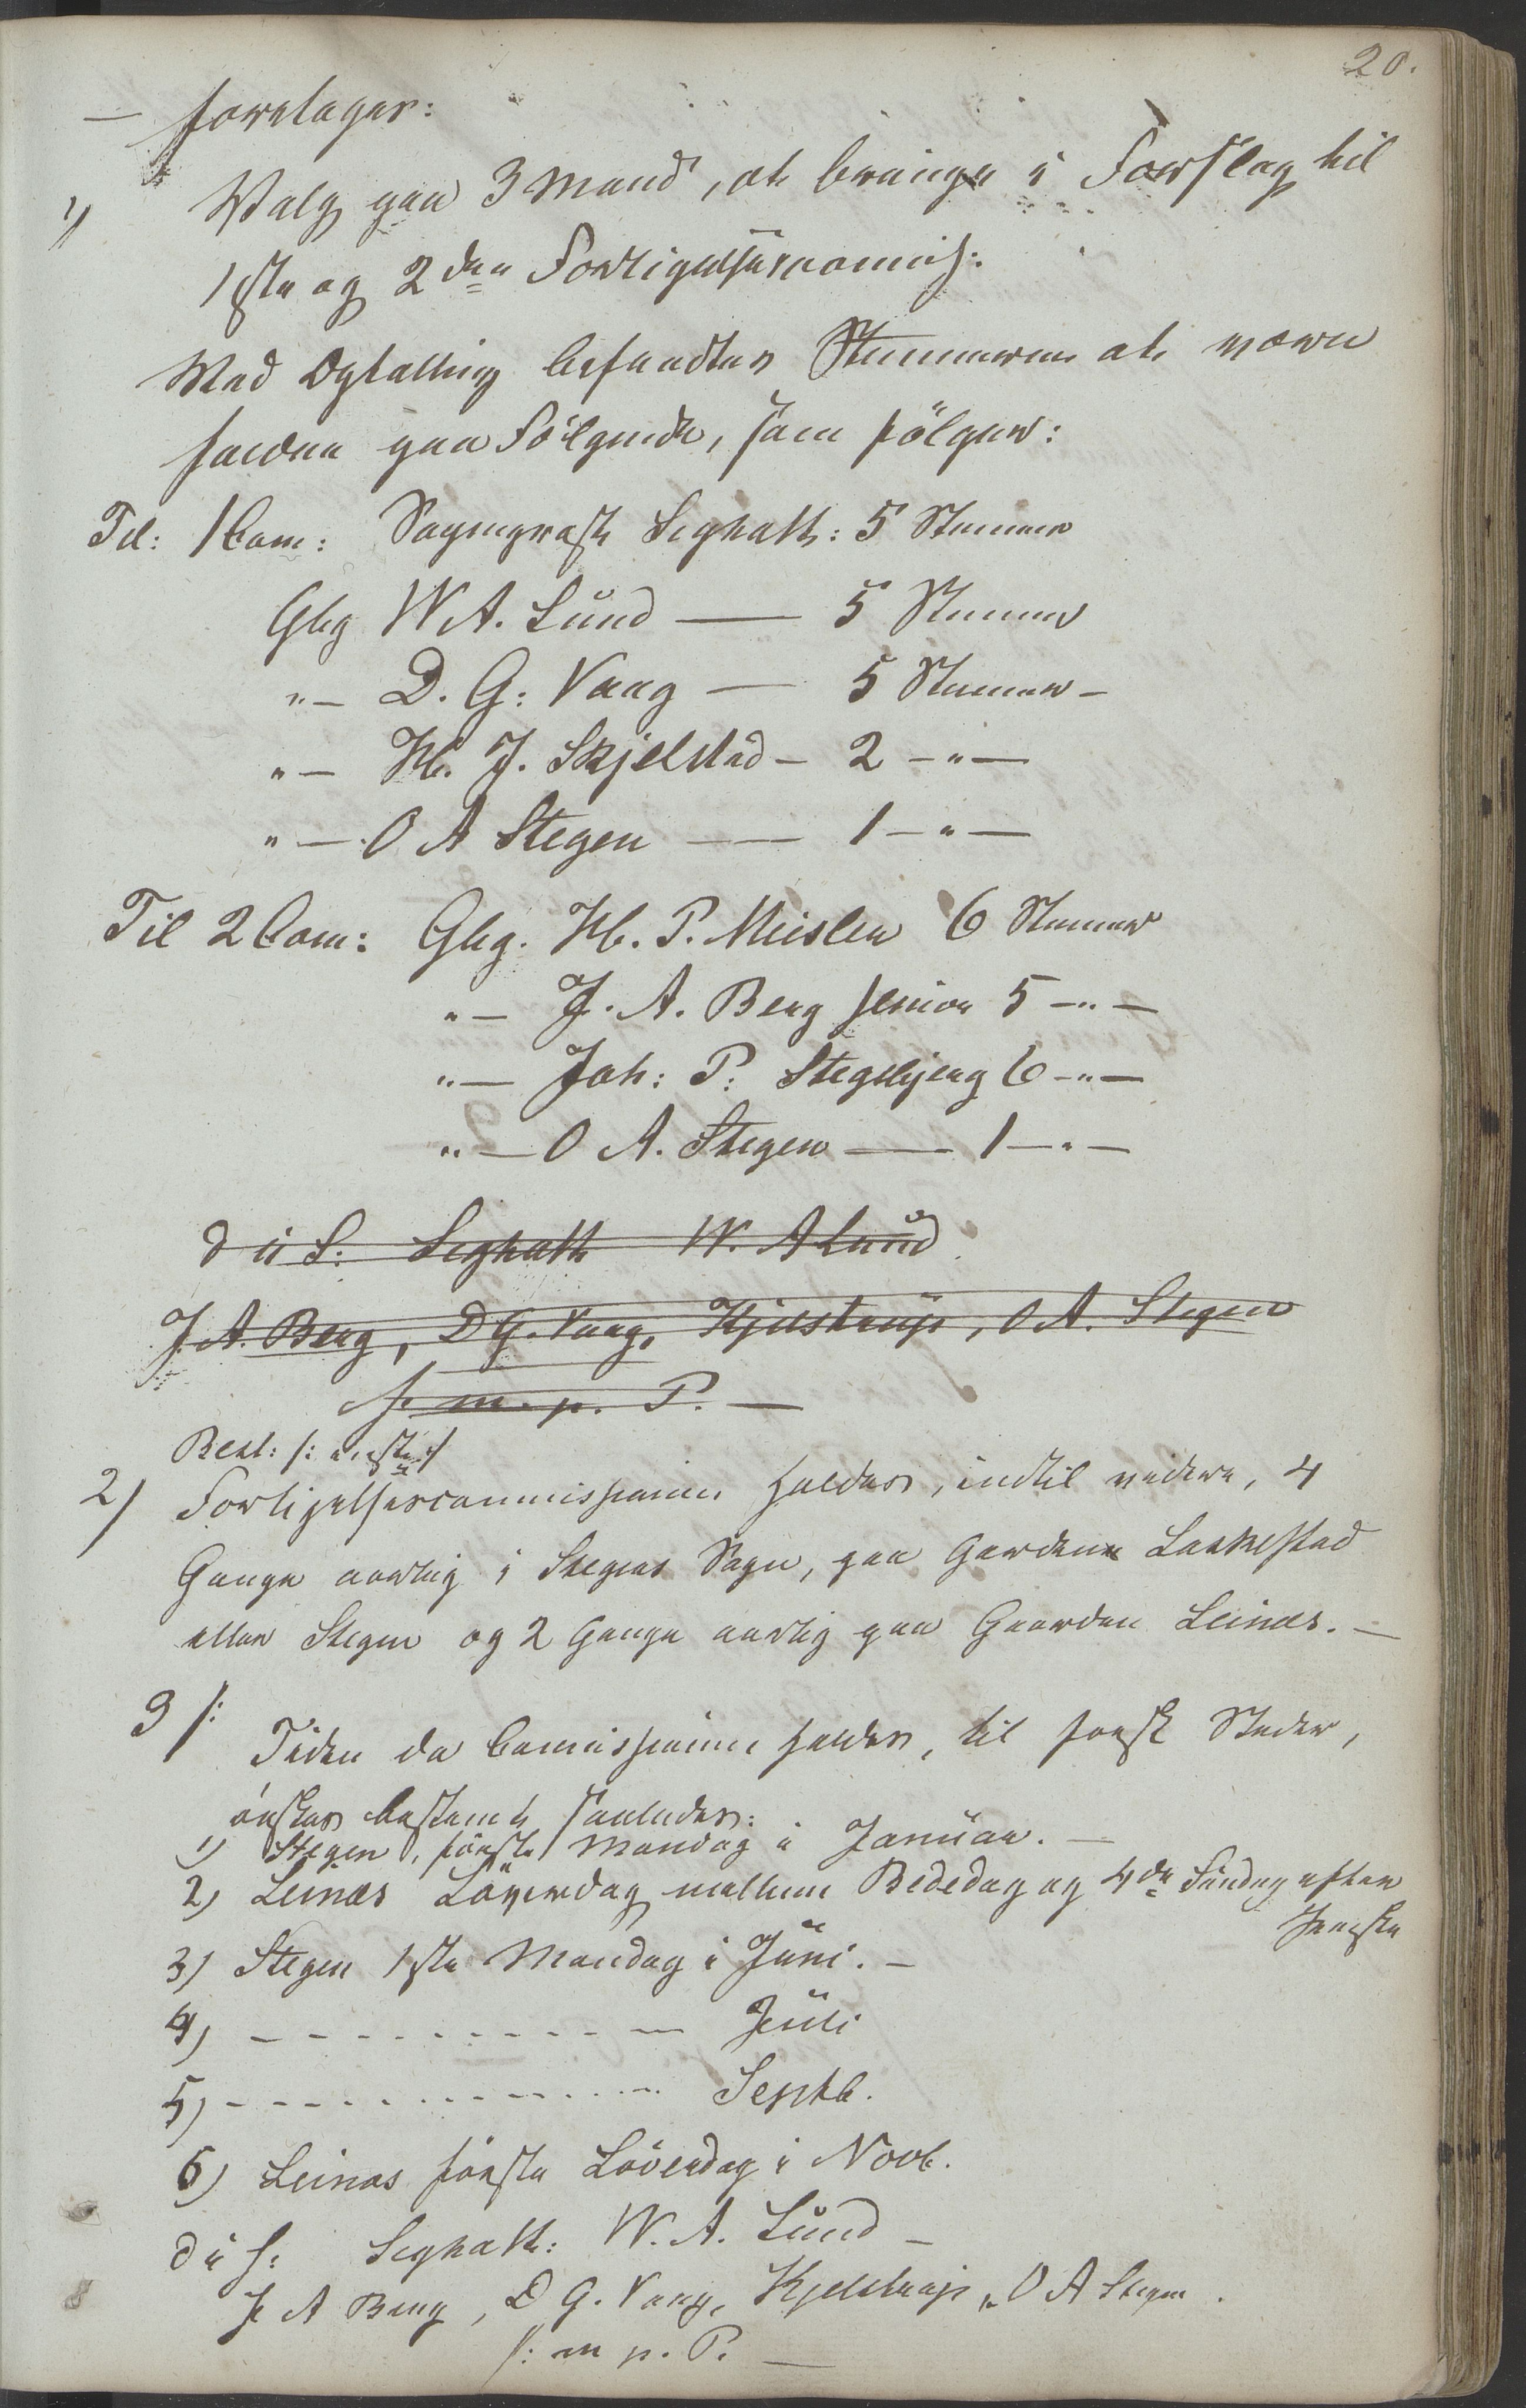 20.
— foretages:
1) Valg paa 3 Mænd, at bringe i Forslag til
1ste og 2den Forligelsescommis:
Ved Optælling befandtes Stemmerne at være
faldne paa Følgende, som følger:
Til: 1 Com: Sogneprest Sighalt: 5 Stemmer
Gbg W A. Lund — 5 Stemmer
"— D. G: Vaag — 5 Stemmer —
"— H. J. Skjelstad — 2 —"—
"— O A Stegen — 1 —"—
Til 2 Com: Gbg. H. P. Meislen 6 Stemmer
"— J. A. Berg senior 5 —"—
"— Joh: P: Stegbjerg 6 —"—
"— O A. Stegen — 1 —"—
d u S: Sighalt W. A Lund
J. A. Berg, D G. Vaag, Kjelstrup, O A. Stegen
/: m. p. P. —
Besl: /: enst :/
2) Forligelsescommissionen holdes, indtil videre, 4
Gange aarlig i Stegens Sogn, paa Gaarden Laskestad
eller Stegen og 2 Gange aarlig paa Gaarden Leines. —
3 /: Tiden da Commissionen holdes, til forsk Steder,
ønskes bestemt saaledes:
1) Stegen, første Mandag i Januar. —
2) Leines Løverdag mellem Bededag og 4de Søndag efter
Paaske
3) Stegen 1ste Mandag i Juni. —
4) - - - - - - - - - — Juli
5) - - - - - - - - - - - Septb.
6) Leines første Løverdag i Novb.
d u s: Sighalt: W. A. Lund —
J A Berg, D G. Vaag, Kjelstrup, O A Stegen.
/: m p. P. —